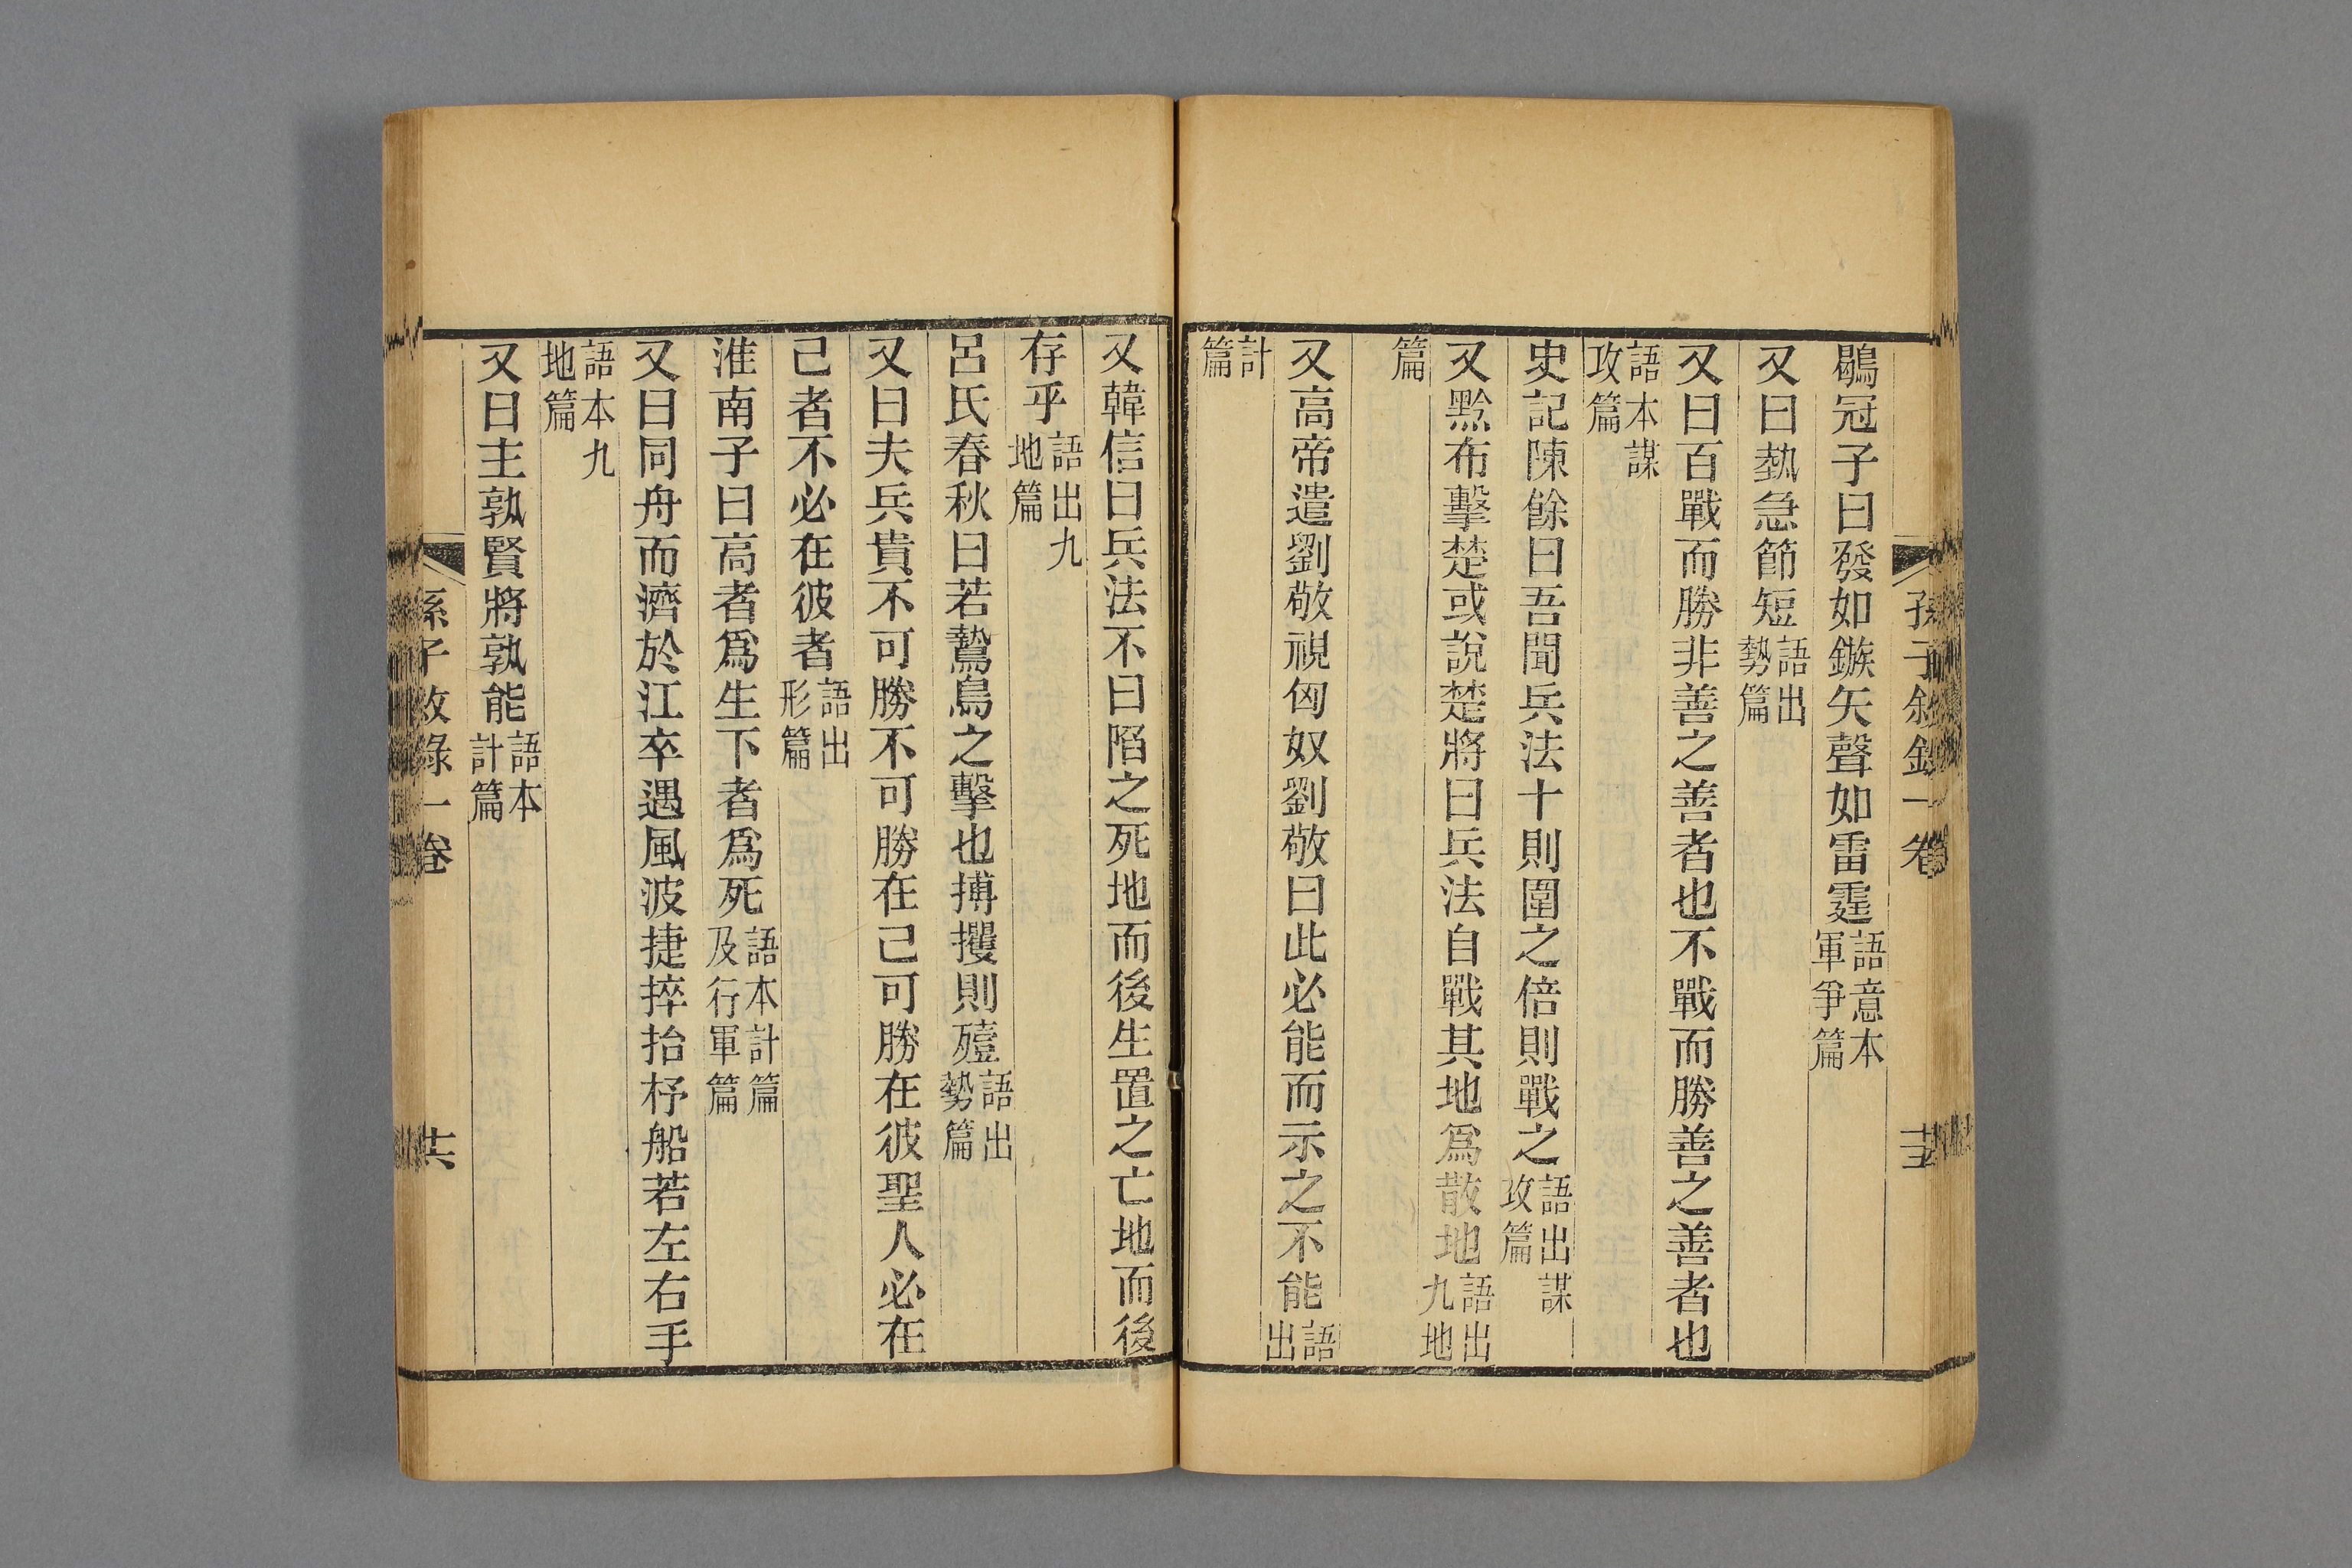 鶡冠子曰發如鏃矢聲如雷霆語意本軍爭篇
又曰埶急節短語出勢篇
又曰百戰而勝非善之善者也不戰而勝善之善者也
語本謀攻篇
史記陳餘曰吾聞兵法十則圍之倍則戰之語出謀攻篇
又黥布擊楚或說楚將曰兵法自戰其地爲散地語出九地
篇
又高帝遣劉敬視匈奴劉敬曰此必能而示之不能語出
計篇
又韓信曰兵法不曰陷之死地而後生置之亡地而後
存乎語出九地篇
呂氏春秋曰若鷙鳥之擊也搏攫則殪語出勢篇
又曰夫兵貴不可勝不可勝在己可勝在彼聖人必在
己者不必在彼者語出形篇
淮南子曰高者爲生下者爲死語本計篇及行軍篇
又曰同舟而濟於江卒遇風波捷捽抬杼船若左右手
語本九地篇
又曰主孰賢將孰能語本計篇
孫子敘錄一卷
十六